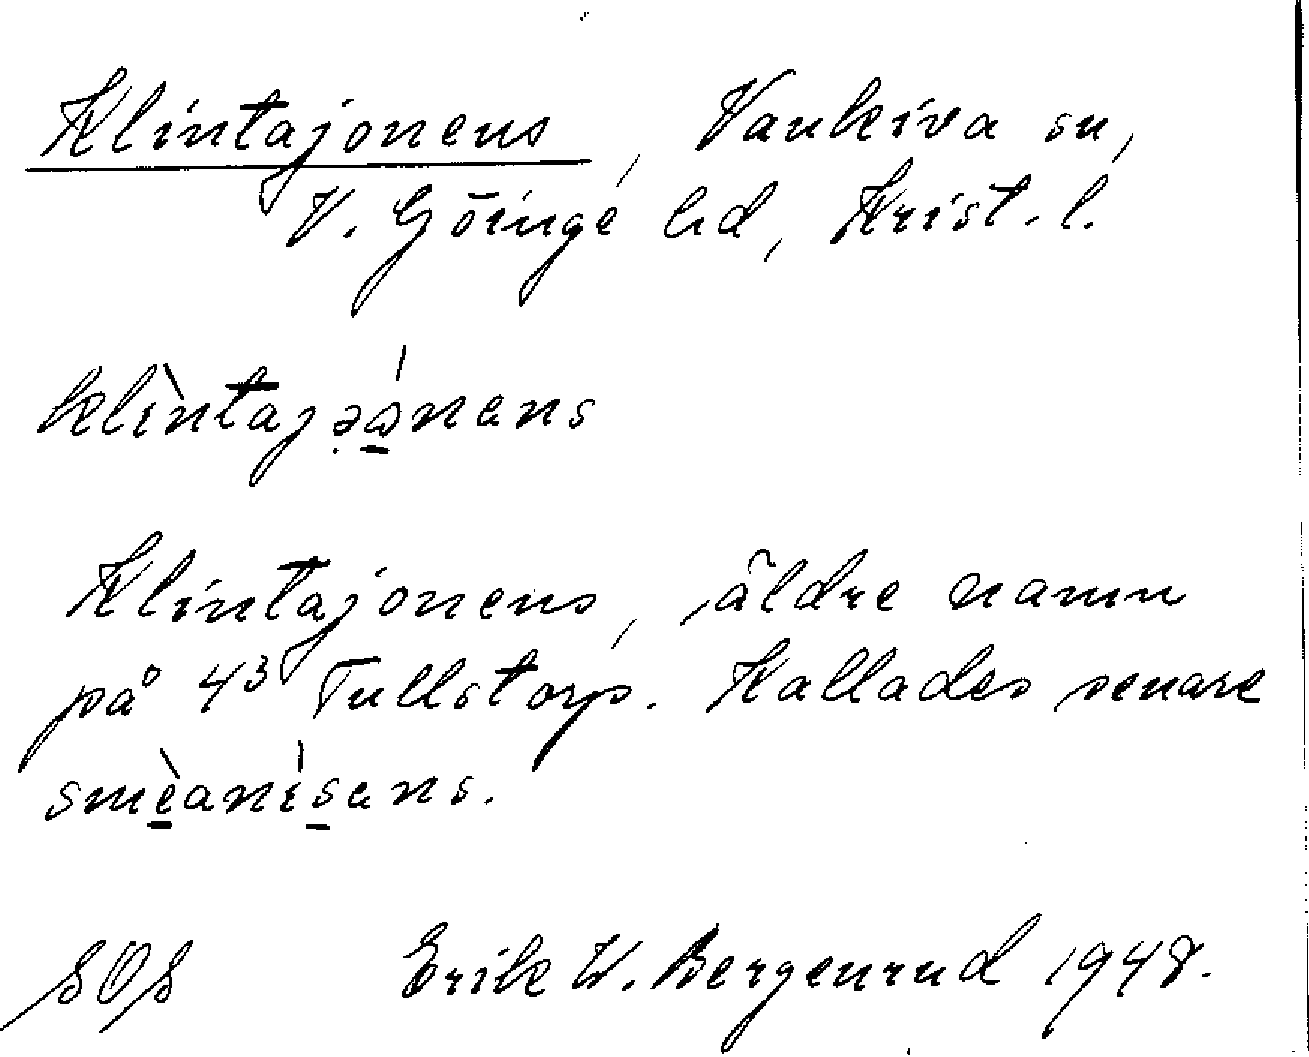 Klintajonens, Vankiva sn,
V. Göinge hd, Krist. l.
klìntajəánens
Klintajonens, äldre namn
på 4³ Tullstorp. Kallades senare
smèanísens.
SOS Erik W. Bergenrud 1948.